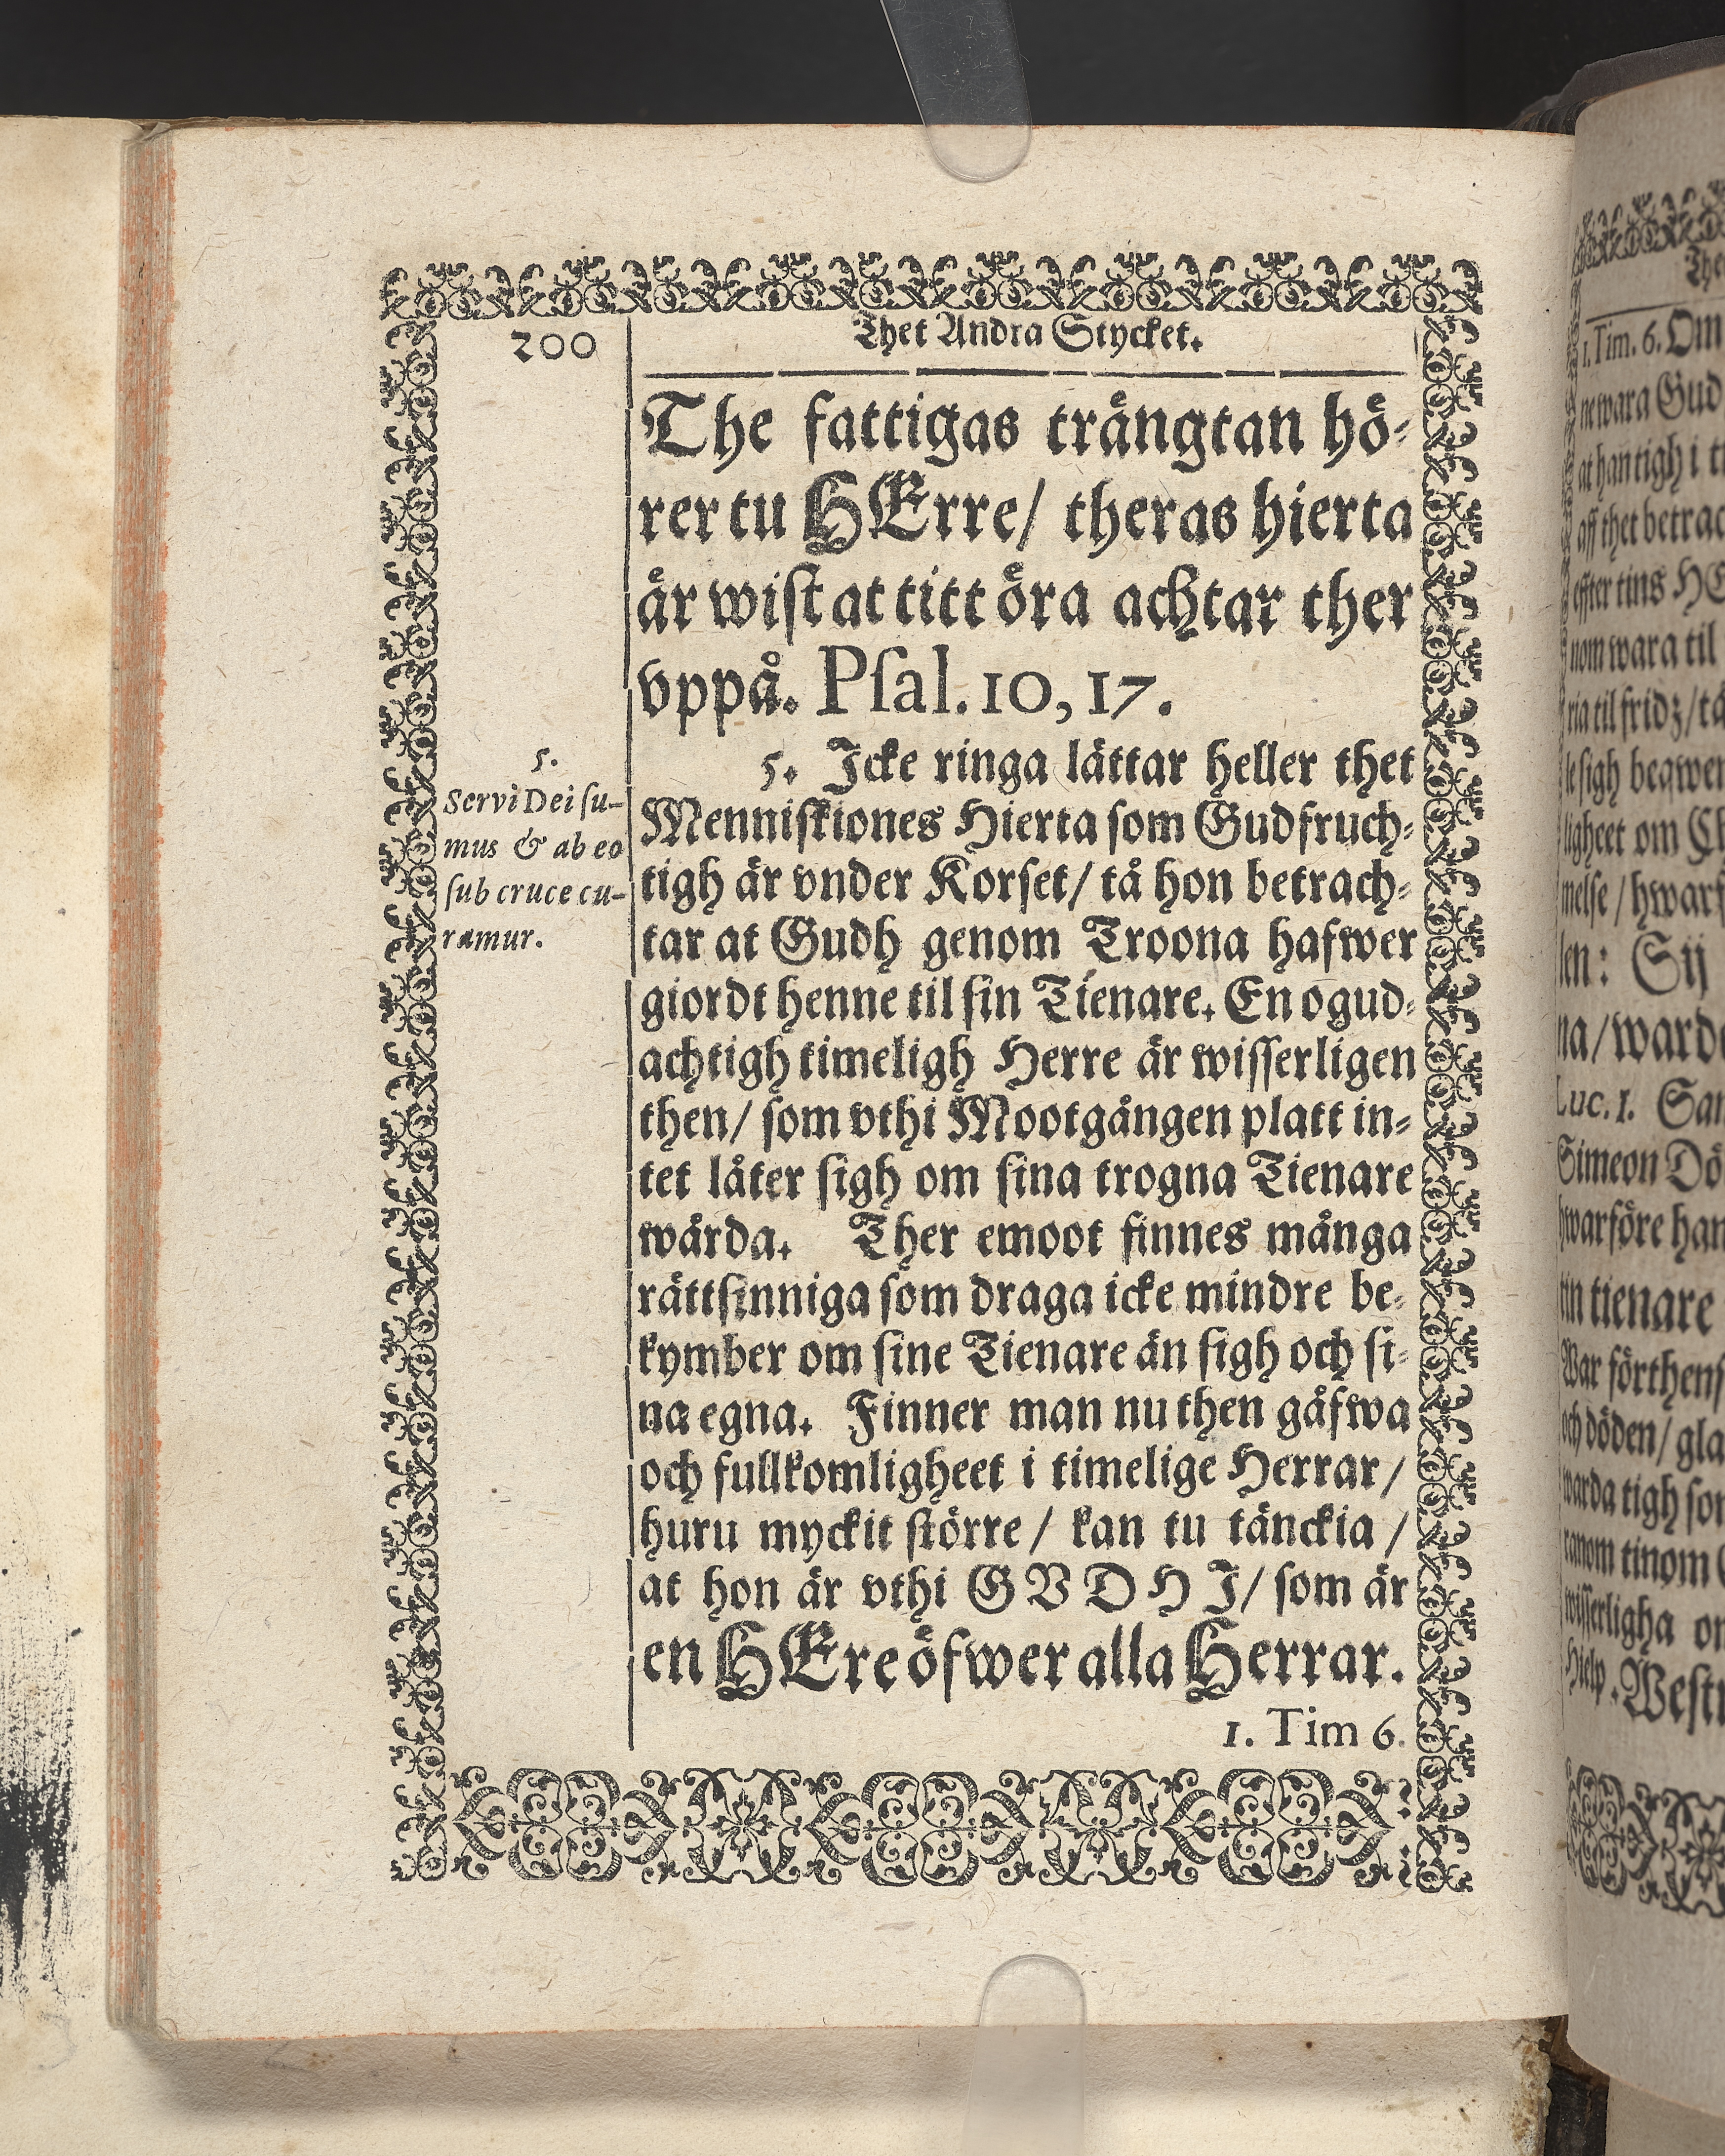 200
Thet Andra Stycket.
The fattigas trängtan hö-
rer tu HErre/ theras hierta
är wist at titt öra achtar ther
vppå. Psal. 10, 17.
5. Icke ringa lättar heller thet
Menniskiones Hierta som Gudfruch-
tigh är vnder Korset/ tå hon betrach-
tar at Gudh genom Troona hafwer
giordt henne til sin Tienare. En ogud-
achtigh timeligh Herre är wisserligen
then/ som vthi Mootgången platt in-
tet låter sigh om sina trogna Tienare
wårda. Ther emoot finnes många
rättsinniga som draga icke mindre be-
kymber om sine Tienare än sigh och si-
na egna. Finner man nu then gåfwa
och fullkomligheet i timelige Herrar/
huru myckit större/ kan tu tänckia/
at hon är vthi GVDHI/ som är
en HEre öfwer alla Herrar.
1. Tim 6.
5.
Servi Dei su-
mus & ab eo
sub cruce cu-
ramur.
The
1. Tim. 6. Om
ne wara Gud
at han tigh i
aff thet betrac
effter tins HE
nom wara til
ria til fridz/
le sigh beqwe
ligheet om
melse/ hwar
len: Sij
na/ ward
Luc. 1. San
Simeon Dö
hwarföre han
tin tienare
War förthens
och döden/ gla
warda tigh so
ranom tinom
wisserligha
Hielp. West